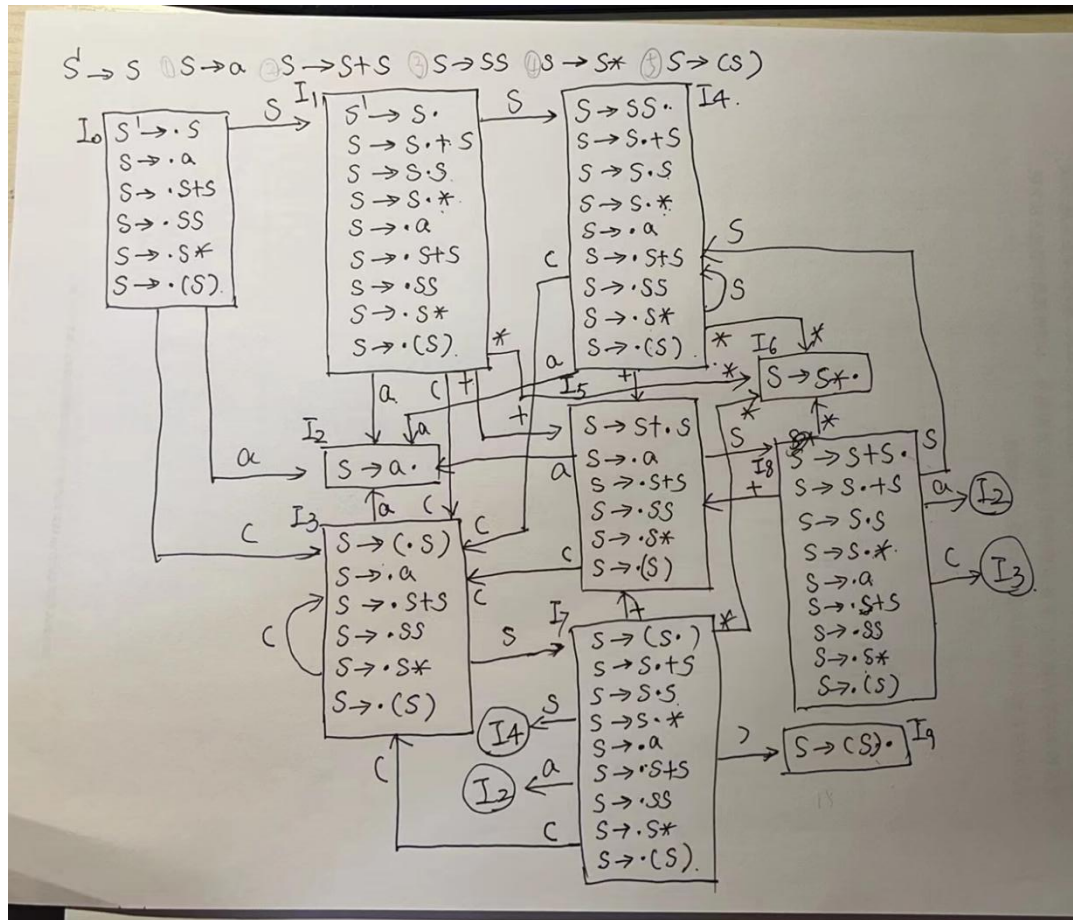 S' → S ① S → a ② S → S+S ③ S → SS ④ S → S* ⑤ S → (S)
I0
S' → ·S
S → ·a
S → ·S+S
S → ·SS
S → ·S*
S → ·(S)
S
a
(
I1
S' → S·
S → S·+S
S → S·S
S → S·*
S → ·a
S → ·S+S
S → ·SS
S → ·S*
S → ·(S)
S
*
a
(
+
+
*
(
I4
S → SS·
S → S·+S
S → S·S
S → S·*
S → ·a
S → ·S+S
S → ·SS
S → ·S*
S → ·(S)
(
S
S
*
*
a
a
+
I2
S → a·
a
I3
S → (·S)
S → ·a
S → ·S+S
S → ·SS
S → ·S*
S → ·(S)
(
S
(
(
I5
S → S+·S
S → ·a
S → ·S+S
S → ·SS
S → ·S*
S → ·(S)
a
S
(
+
I6
S → S*·
*
*
I8
S → S+S·
S → S·+S
S → S·S
S → S·*
S → ·a
S → ·S+S
S → ·SS
S → ·S*
S → ·(S)
S
a
I2
(
I3
I7
S → (S·)
S → S·+S
S → S·S
S → S·*
S → ·a
S → ·S+S
S → ·SS
S → ·S*
S → ·(S)
+
*
S
I4
a
I2
(
(
)
S → (S)·
I9